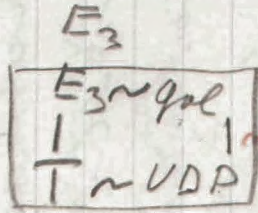 E₃
E₃~gal
~UDP